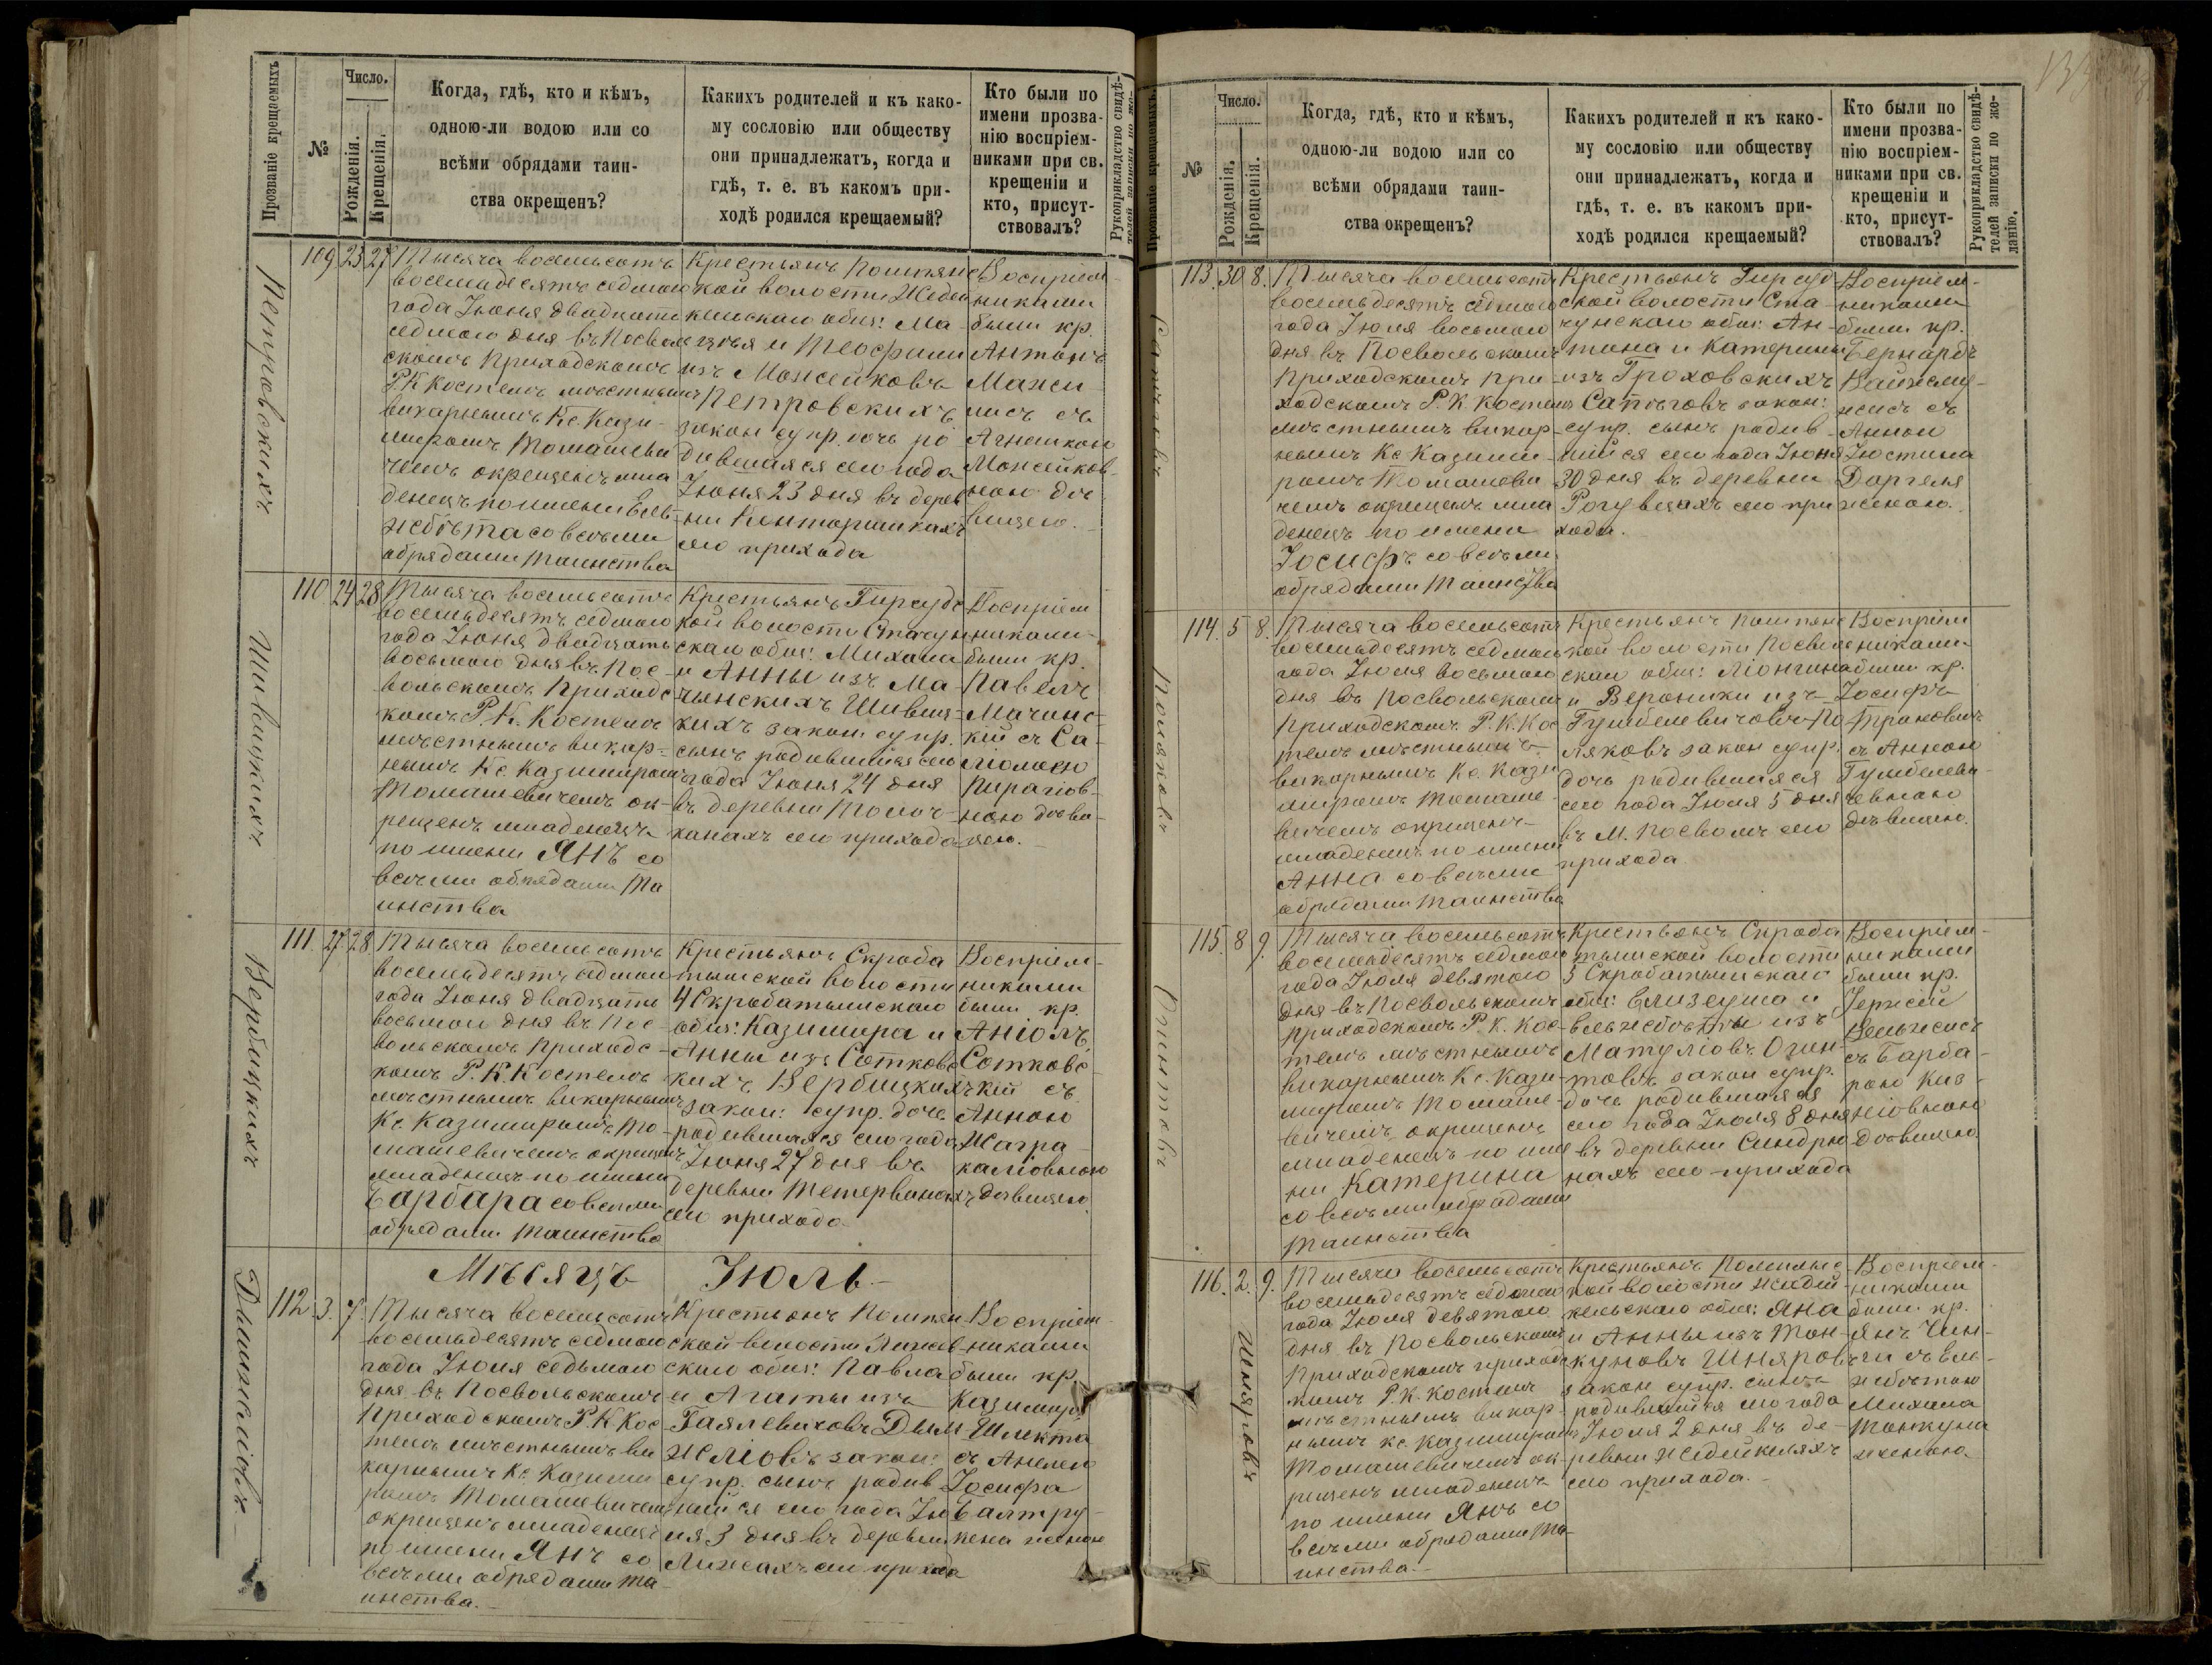 Прозваніе крещаемыхъ
№
Число.
Рожденія.
Крещенія.
Когда, гдѣ, кто и кѣмъ,
одною-ли водою или со
всѣми обрядами таин-
ства окрещенъ?
Какихъ родителей и къ како-
му сословію или обществу
они принадлежатъ, когда и
гдѣ, т. е. въ какомъ при-
ходѣ родился крещаемый?
Кто были по
имени прозва-
нію воспріем-
никами при св.
крещеніи и
кто, присут-
ствовалъ?
Рукоприкладство свидѣ-
телей записки по же-
Петровскихъ
109 23 27
Тысяча восемьсотъ
восемьдесятъ седмого
года Іюня двадцати
седмого дня въ Посволь
скомъ Приходскомъ
Р.К Костелѣ мѣстнымъ
викарнымъ Кс. Кази-
миромъ Томашеви
чемъ окрещенъ мла
денецъ по имени Ель-
жбѣта со всѣми
обрядами таинства
Крестьянъ Помпянс
кой волости Жедей
кельскаго общ: Ма-
цѣя и Теофили
изъ Можейковъ
Петровскихъ
закон супр. дочь ро
дившаяся сего года
Іюня 23 дня въ дерев
ни Кентаришкахъ
сего прихода
Воспріем-
никами
были кр.
Антонъ
съ
Агнешкою
Можейков-
ною дѣ
вицею.
Шивицкихъ
110 24 28
Тысяча восемьсотъ
восемьдесятъ седмого
года Іюня двадцать
восьмого дня въ Пос-
вольскомъ Приходс
комъ Р.К. Костелѣ
мѣстнымъ викар-
нымъ Кс. Казимиромъ
Томашевичемъ ок-
рещенъ младенецъ
по имени Янъ со
всѣми обрядами та
инства
Крестьянъ Гирсудс
кой волости Стачун
скаго общ: Михала
и Анны изъ Ма-
чинскихъ Шивиц-
кихъ закон супр.
сынъ родившійся сего
года Іюня 24 дня
въ деревни Толоч-
канахъ сего прихода
Воспріем
никами
были кр.
Павелъ
Мачинс-
кій съ Са-
ломеею
Пирагов-
ною дѣви-
цею.
Вербицкихъ
111. 27 28
Тысяча восемьсотъ
восемьдесятъ седмого
года Іюня двадцати
восьмого дня въ Пос-
вольскомъ Приходс-
комъ Р.К. Костелѣ
мѣстнымъ викарнымъ
Кс. Казимиромъ То-
машевичемъ окрещенъ
младенецъ по имени
Барбара со всѣми
обрядами таинства
Крестьянъ Скроба
тышской волости
4 Скробатышскаго
общ: Казимира и
Анны изъ Сотковс
кихъ Вербицкихъ
закон: супр. дочь
родившаяся сего года
Іюня 27 дня въ
деревни Тетервинахъ
сего прихода
Воспріем-
никами
были кр.
Аніолъ
Сотковс-
кій съ
Анною
Жагра-
каліовною
дѣвицею.
Мѣсяцъ Іюль
Дымжеліовъ.
112. 3. 7.
Тысяча восемьсотъ
восемьдесятъ седмого
года Іюля седьмого
дня въ Посвольскомъ
Приходскомъ Р.К Кос
телѣ мѣстнымъ ви
карнымъ Кс. Казими
ромъ Томашевичемъ
окрещенъ младенецъ
по имени Янъ со
всѣми обрядами та-
инства.
Крестьянъ Помпян
ской волости
скаго общ: Павла
и Агаты изъ
Гаялевиховъ Дым-
желіовъ закон:
супр. сынъ родив
шійся сего года Ію
ля 3 дня въ деревни
сего прихода
Воспріем-
никами
были кр.
Казимиръ
Шлекта
съ Анелею
Іосифа
Балтру-
пена женою
№
Число.
Рожденія.
Крещенія.
Когда, гдѣ, кто и кѣмъ,
одною-ли водою или со
всѣми обрядами таин-
ства окрещенъ?
Какихъ родителей и къ како-
му сословію или обществу
они принадлежатъ, когда и
гдѣ, т. е. въ какомъ при-
ходѣ родился крещаемый?
Кто были по
имени прозва-
нію воспріем-
никами при св.
крещеніи и
кто, присут-
ствовалъ?
Рукоприкладство свидѣ-
телей записки по же-
ланію.
113. 30 8.
Тысяча восемьсотъ
восемьдесятъ седмого
года Іюля восьмого
дня въ Посвольскомъ
Приходскомъ При-
ходскомъ Р.К. Костелѣ
мѣстнымъ викар-
нымъ Кс Казими-
ромъ Томашеви
чемъ окрещенъ мла
денецъ по имени
Іосифъ со всѣми
обрядами таинства
Крестьянъ Гирсуд
ской волости Ста-
чунскаго общ: Ан-
тона и Катерины
изъ Гроховскихъ
Сапѣговъ закон:
супр. сынъ родив-
шійся сего года Іюня
30 дня въ деревни
Рогувцахъ сего при
хода.
Воспріем-
никами
были кр.
Бернардъ
съ
Анною
Юстина
Даргеля
женою.
Поляковъ
114. 5 8.
Тысяча восемьсотъ
восемьдесятъ седмого
года Іюля восьмого
дня въ Посвольскомъ
Приходскомъ Р.К.Кос
телѣ мѣстнымъ
викарнымъ Кс. Кази
миромъ Томаше-
вичемъ окрещенъ
младенецъ по имени
Анна со всѣми
обрядами таинства
Крестьянъ Помпянс
кой волости Посволь
скаго общ: Лонгина
и Вероники изъ
Гумбелевичовъ По-
ляковъ закон супр.
дочь родившаяся
сего года Іюля 5 дня
въ М. Посволѣ сего
прихода
Воспріем
никами
были кр.
Іосифъ
съ Анною
Гумбелеви-
чевною
дѣвицею.
115. 8 9.
Тысяча восемьсотъ
восемьдесятъ седмого
года Іюля девятого
дня въ Посвольскомъ
Приходскомъ Р.К. Кос-
телѣ мѣстнымъ
викарнымъ Кс. Кази-
миромъ Томаше-
вичемъ окрещенъ
младенецъ по име
ни Катерина
со всѣми обрядами
таинства
Крестьянъ Скроба
тышской волости
5 Скробатышскаго
общ: Елизеуша и
Ельжбѣты изъ
Матуліовъ Огин-
товъ закон супр.
дочь родившаяся
сего года Іюля 8 дня
въ деревни Синдрю-
нахъ сего прихода
Воспріем-
никами
были кр.
съ Барба-
рою
дѣвицею.
Шняровъ
116. 2. 9.
Тысяча восемьсотъ
восемьдесятъ седмого
года Іюля девятого
дня въ Посвольскомъ
Приходскомъ приходс
комъ Р.К. Костелѣ
мѣстнымъ викар-
нымъ Кс. Казимиромъ
Томашевичемъ ок-
рещенъ младенецъ
по имени Янъ со
всѣми обрядами та-
инства.
Крестьянъ Помпянс
кой волости Жедей-
кельскаго общ: Яна
и Анны изъ Тон-
куновъ Шняровъ
закон супр. сынъ
родившійся сего года
Іюля 2 дня въ де-
ревни Жедейкеляхъ
сего прихода.
Воспріем-
никами
были кр.
Янъ Чин-
ги съ Ель-
жбѣтою
Михала
Тонкуна
женою.